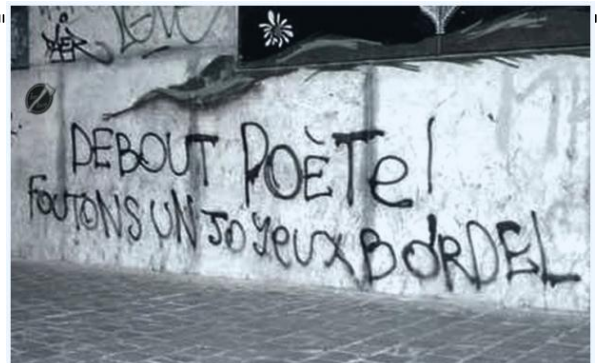 DEBOUT POÈTE!
FOUTONS UN JOYEUX BORDEL